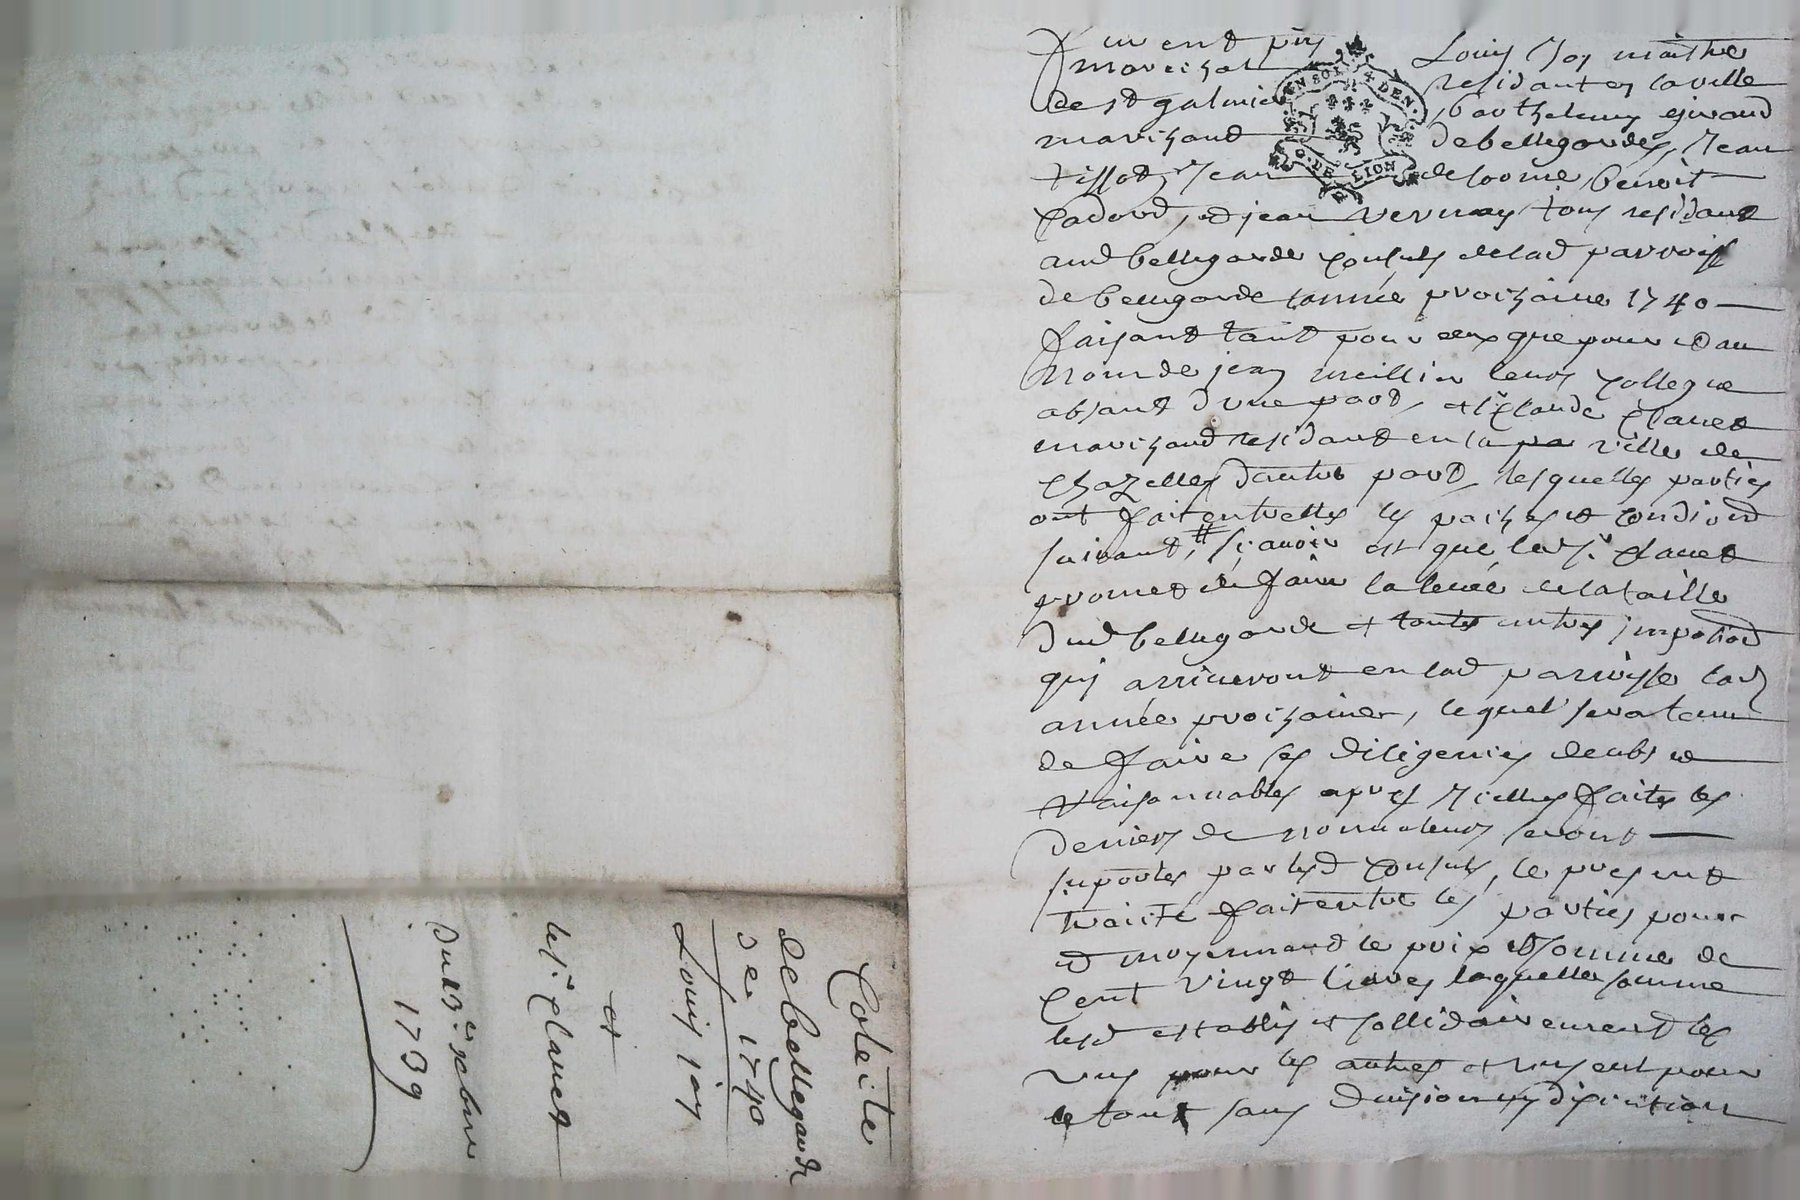 furent pns Louis Joy maitre
mareschal residant en la ville
de st galmier, barthelemy giraud
marchand de bellegarde, Jean
tissot, Jean delorme, benoit
et jean vernay tous residant
aud bellegarde consuls de lad parroisse
de bellegarde lannée prochaine 1740
faisant tant pour eux que pour et au
nom de jean meillier leurs collegue
absant dune part, et sr Claude Clanet
marchand residant en la ville de
Chazelles dautre part, lesquelles parties
ont fait entrelles les paches et condions
suivant, sçavoir est que led sr Clanet
promet de faire la levée de la taille
dud bellegarde et toutes autres impoõns
qui arriveront en lad parroisse lad
année prochaine, lequel sera tenu
de faire ses diligences deubs et
raisonnables apres Icelles faites les
deniers de non valeurs seront
suportes par lesd Consuls, le present
traité fait entre les parties pour
et moyennant le prix et somme de
Cent vingt livres laquelle somme
lesd establis et sollidairement les
uns pour les autres et un seul pour
le tout sans division ny discution
EN SOL 4 DEN.
G. DE LION
Coleite
de bellegarde
de 1740
Louis ioy
et
le sr Clanet
Du 13e xbre
1739